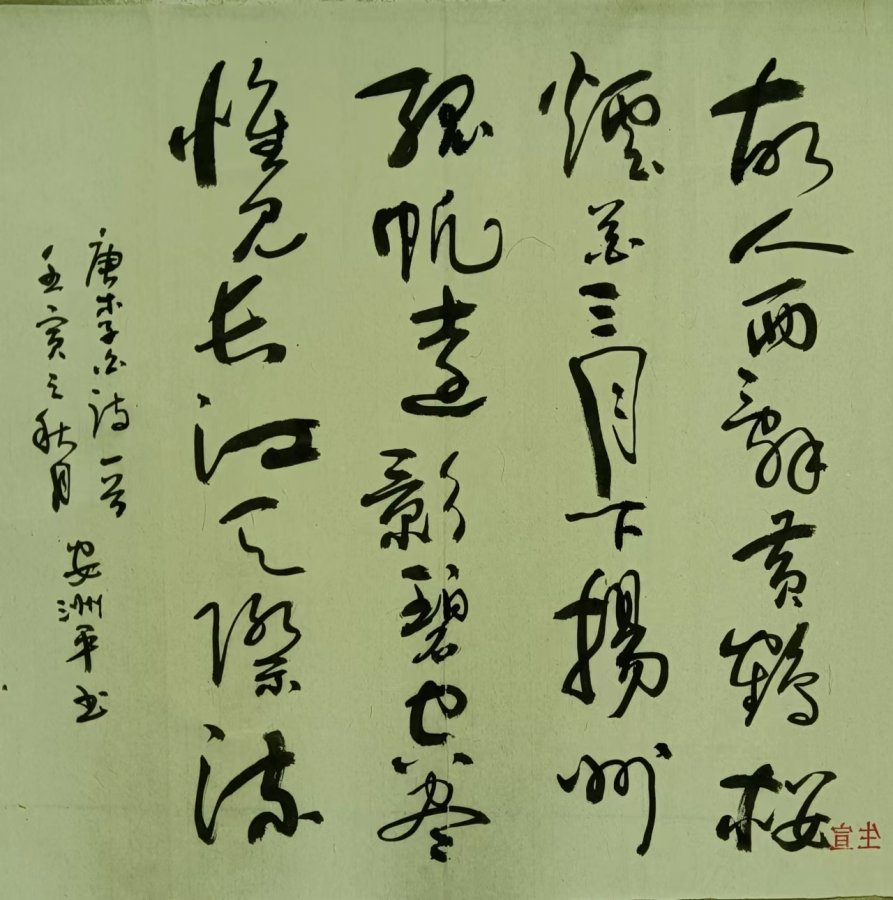 故人西辞黄鹤楼
烟花三月下揚州
孤帆遠影碧空盡
惟见长江天際流
唐李白诗一首
壬寅之秋月
安洲平书
生宣